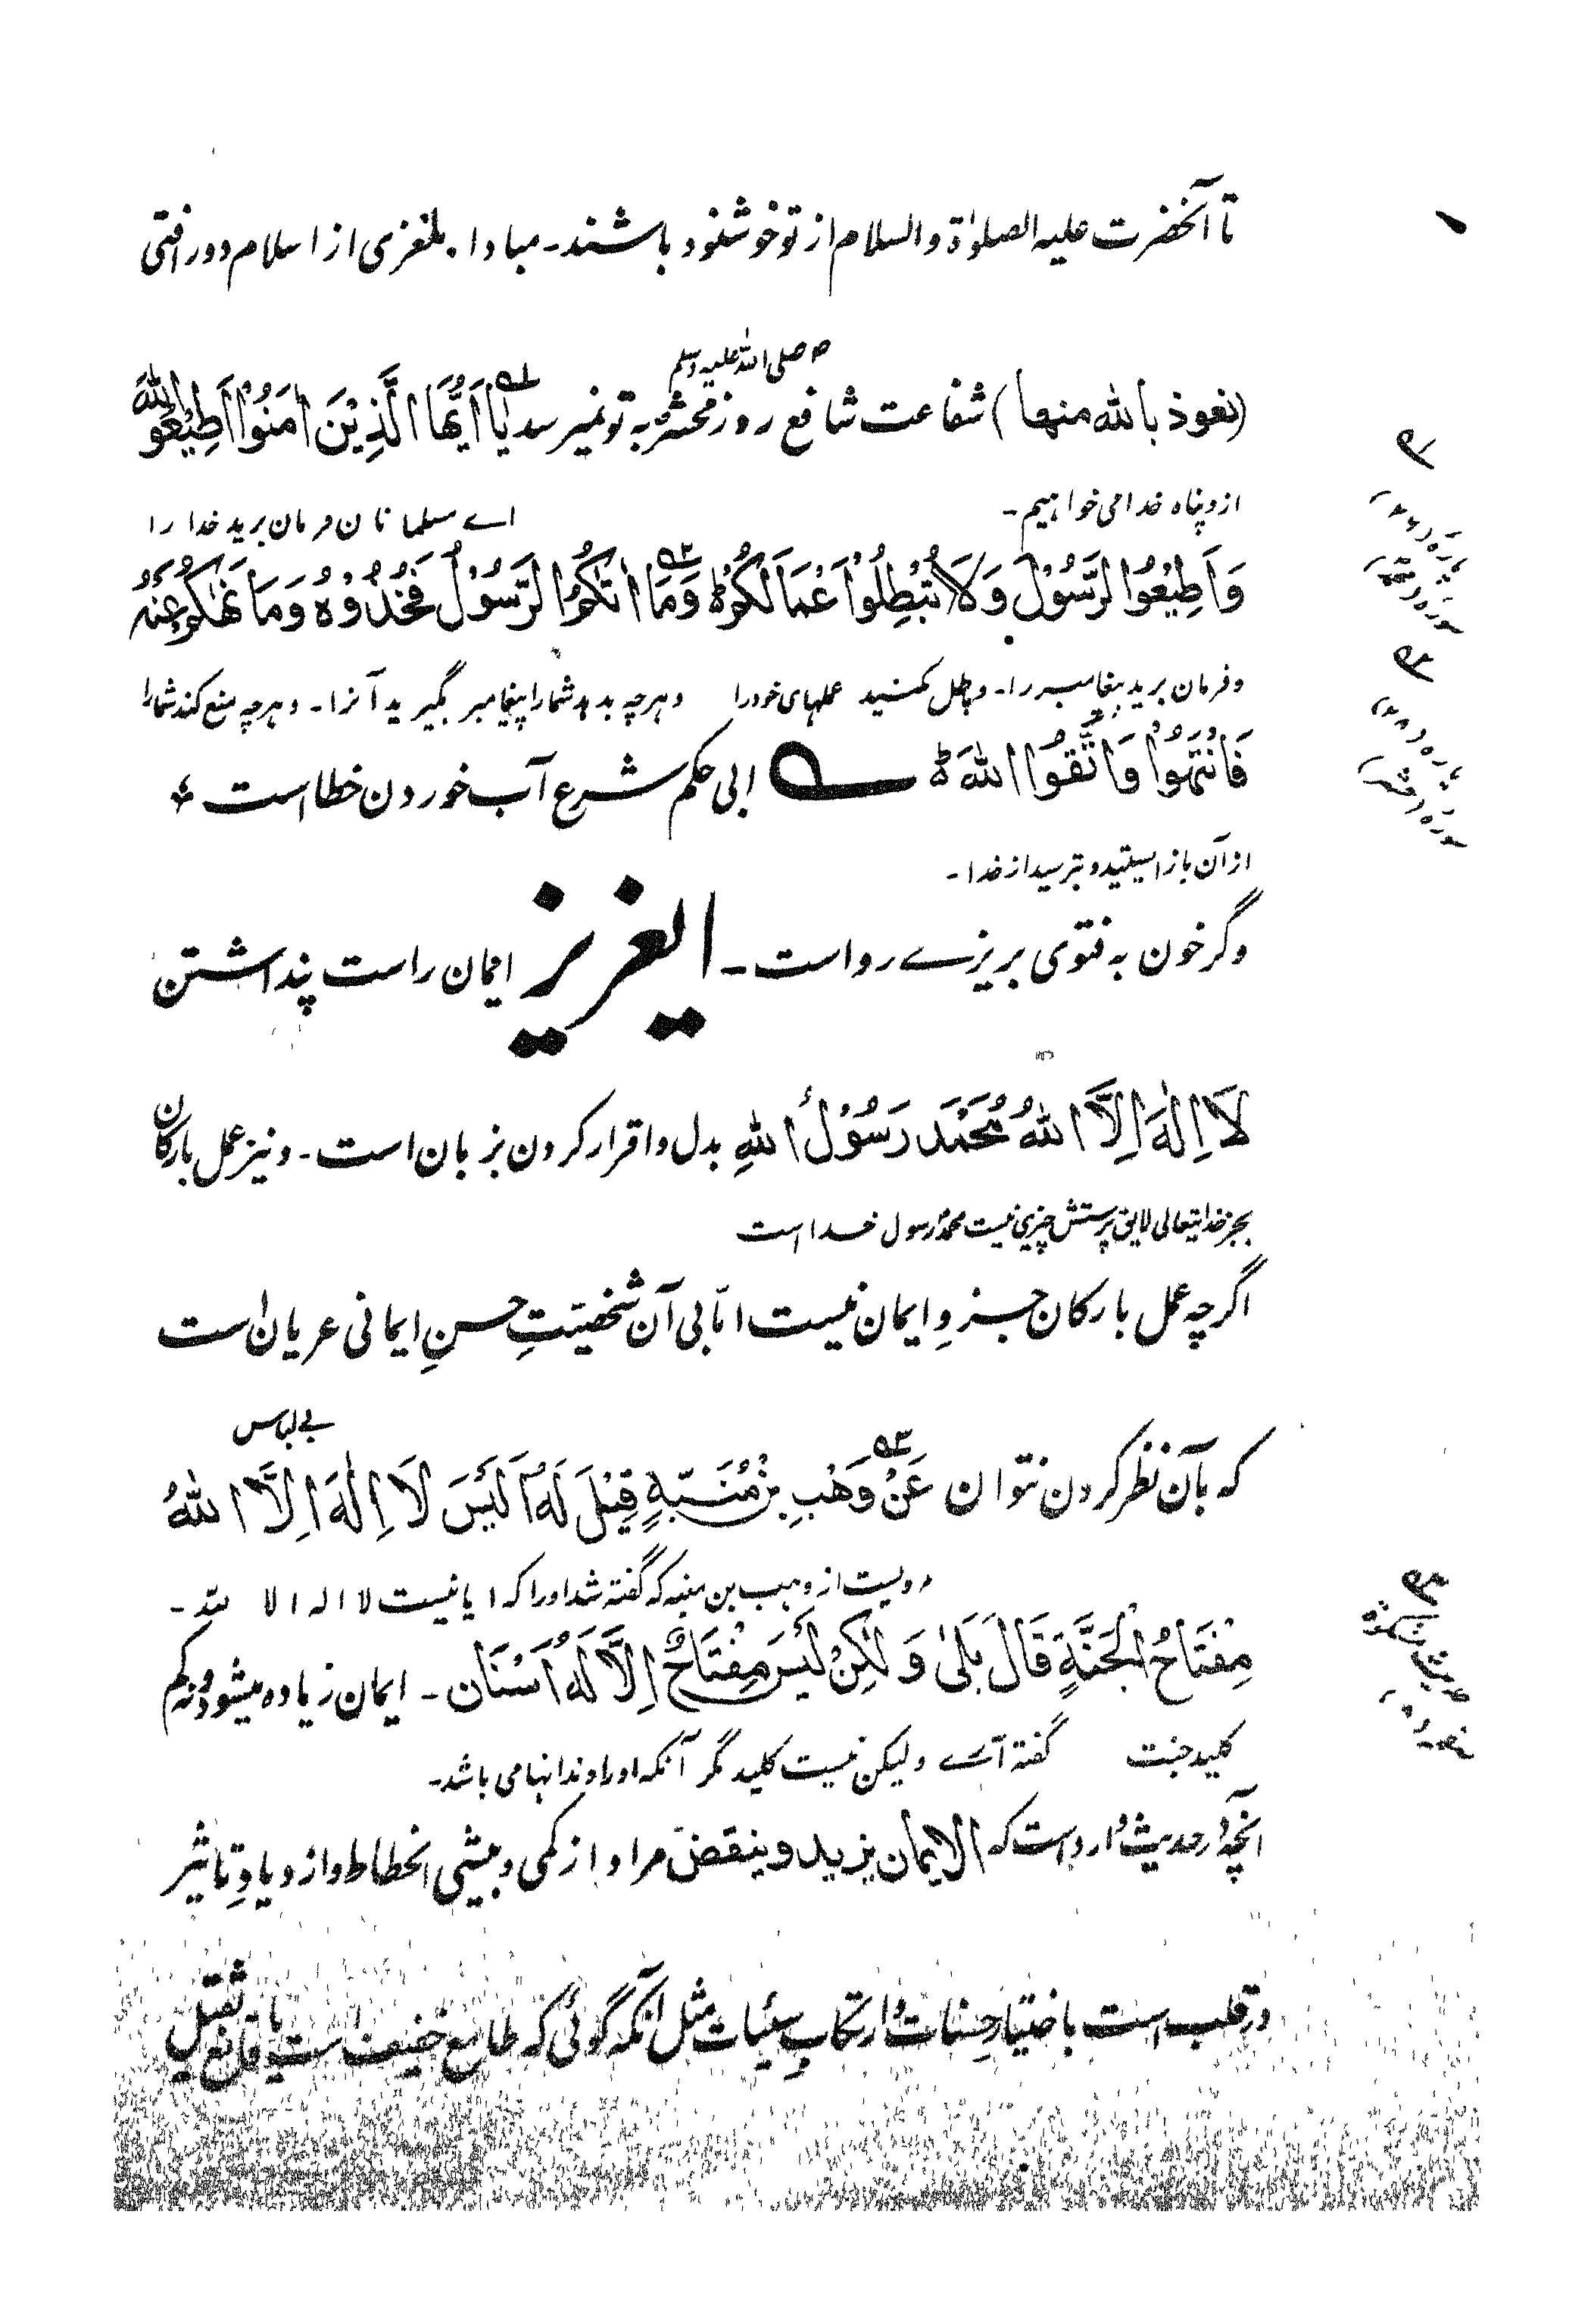 تا آنخضرت علیه الصلوٰة والسلام از تو خوشنود باشند۔ مبادا بلغزی از اسلام دور افتی
صلی الله علیه وسلم
(نعوذ بالله منها) شفاعت شافع روز محشر به تو نمیرسد یٰا اَیُّهَا الَّذِیْنَ اٰمَنُوْا اَطِیْعُوا اللّٰهَ
ازو پناه خدا می خواهیم۔ اے مسلمانان فرمان برید خدا را
وَاَطِیْعُوا الرَّسُوْلَ وَلَا تُبْطِلُوْا اَعْمَالَکُمْ ط وَمَا اٰتٰکُمُ الرَّسُوْلُ فَخُذُوْهُ وَمَا نَهٰکُمْ عَنْهُ
و فرمان برید پیغامبر را۔ و باطل کمنید عملهای خود را و هرچه بدهد شما را پیغامبر بگیرید آنرا۔ و هرچه منع کند شما را
فَانْتَهُوْا وَاتَّقُوا اللّٰهَ ط ابی حکم شرع آب خوردن خطا است
از آن باز ایستید و بترسید از خدا۔
وگر خون به فتوی بریزے رواست۔ ایعزیز ایمان راست پنداشتن
لَا اِلٰهَ اِلَّا اللّٰهُ مُحَمَّد رَسُوْلُ اللّٰهِ بدل و اقرار کردن بزبان است۔ و نیز عمل بارکان
بجز خدایتعالی لایق پرستش چیزی نیست محمد رسول خدا است
اگرچه عمل بارکان جزوِ ایمان نیست امّا بی آن شخصیّتِ حسنِ ایمانی عریان است
بے لباس
که بآن نظر کردن نتوان عَنْ وَهْبِ بْنِ مُنَبِّهٍ قِیْلَ لَهٗ اَلَیْسَ لَا اِلٰهَ اِلَّا اللّٰهُ
رویست از وهب بن منبه که گفته شد او را که ایا نیست لا اله الا الله۔
مِفْتَاحُ الْجَنَّةِ قَالَ بَلٰی وَلٰکِنْ لَیْسَ مِفْتَاحٌ اِلَّا لَهٗ اَسْنَان۔ ایمان زیاده میشود و نه کم
کلید جنت گفته آرے ولیکن نیست کلید مگر آنکه او را دندانها می باشد۔
آنچه در حدیث وارد است که الایمان یزید وینقض مراد از کمی و بیشی انحطاط و ازدیادِ تاثیر
در قلب است باختیار حسنات و ارتکاب سیئات مثل آنکه گوئی که طامع خفیف است یا قانع ثقیل